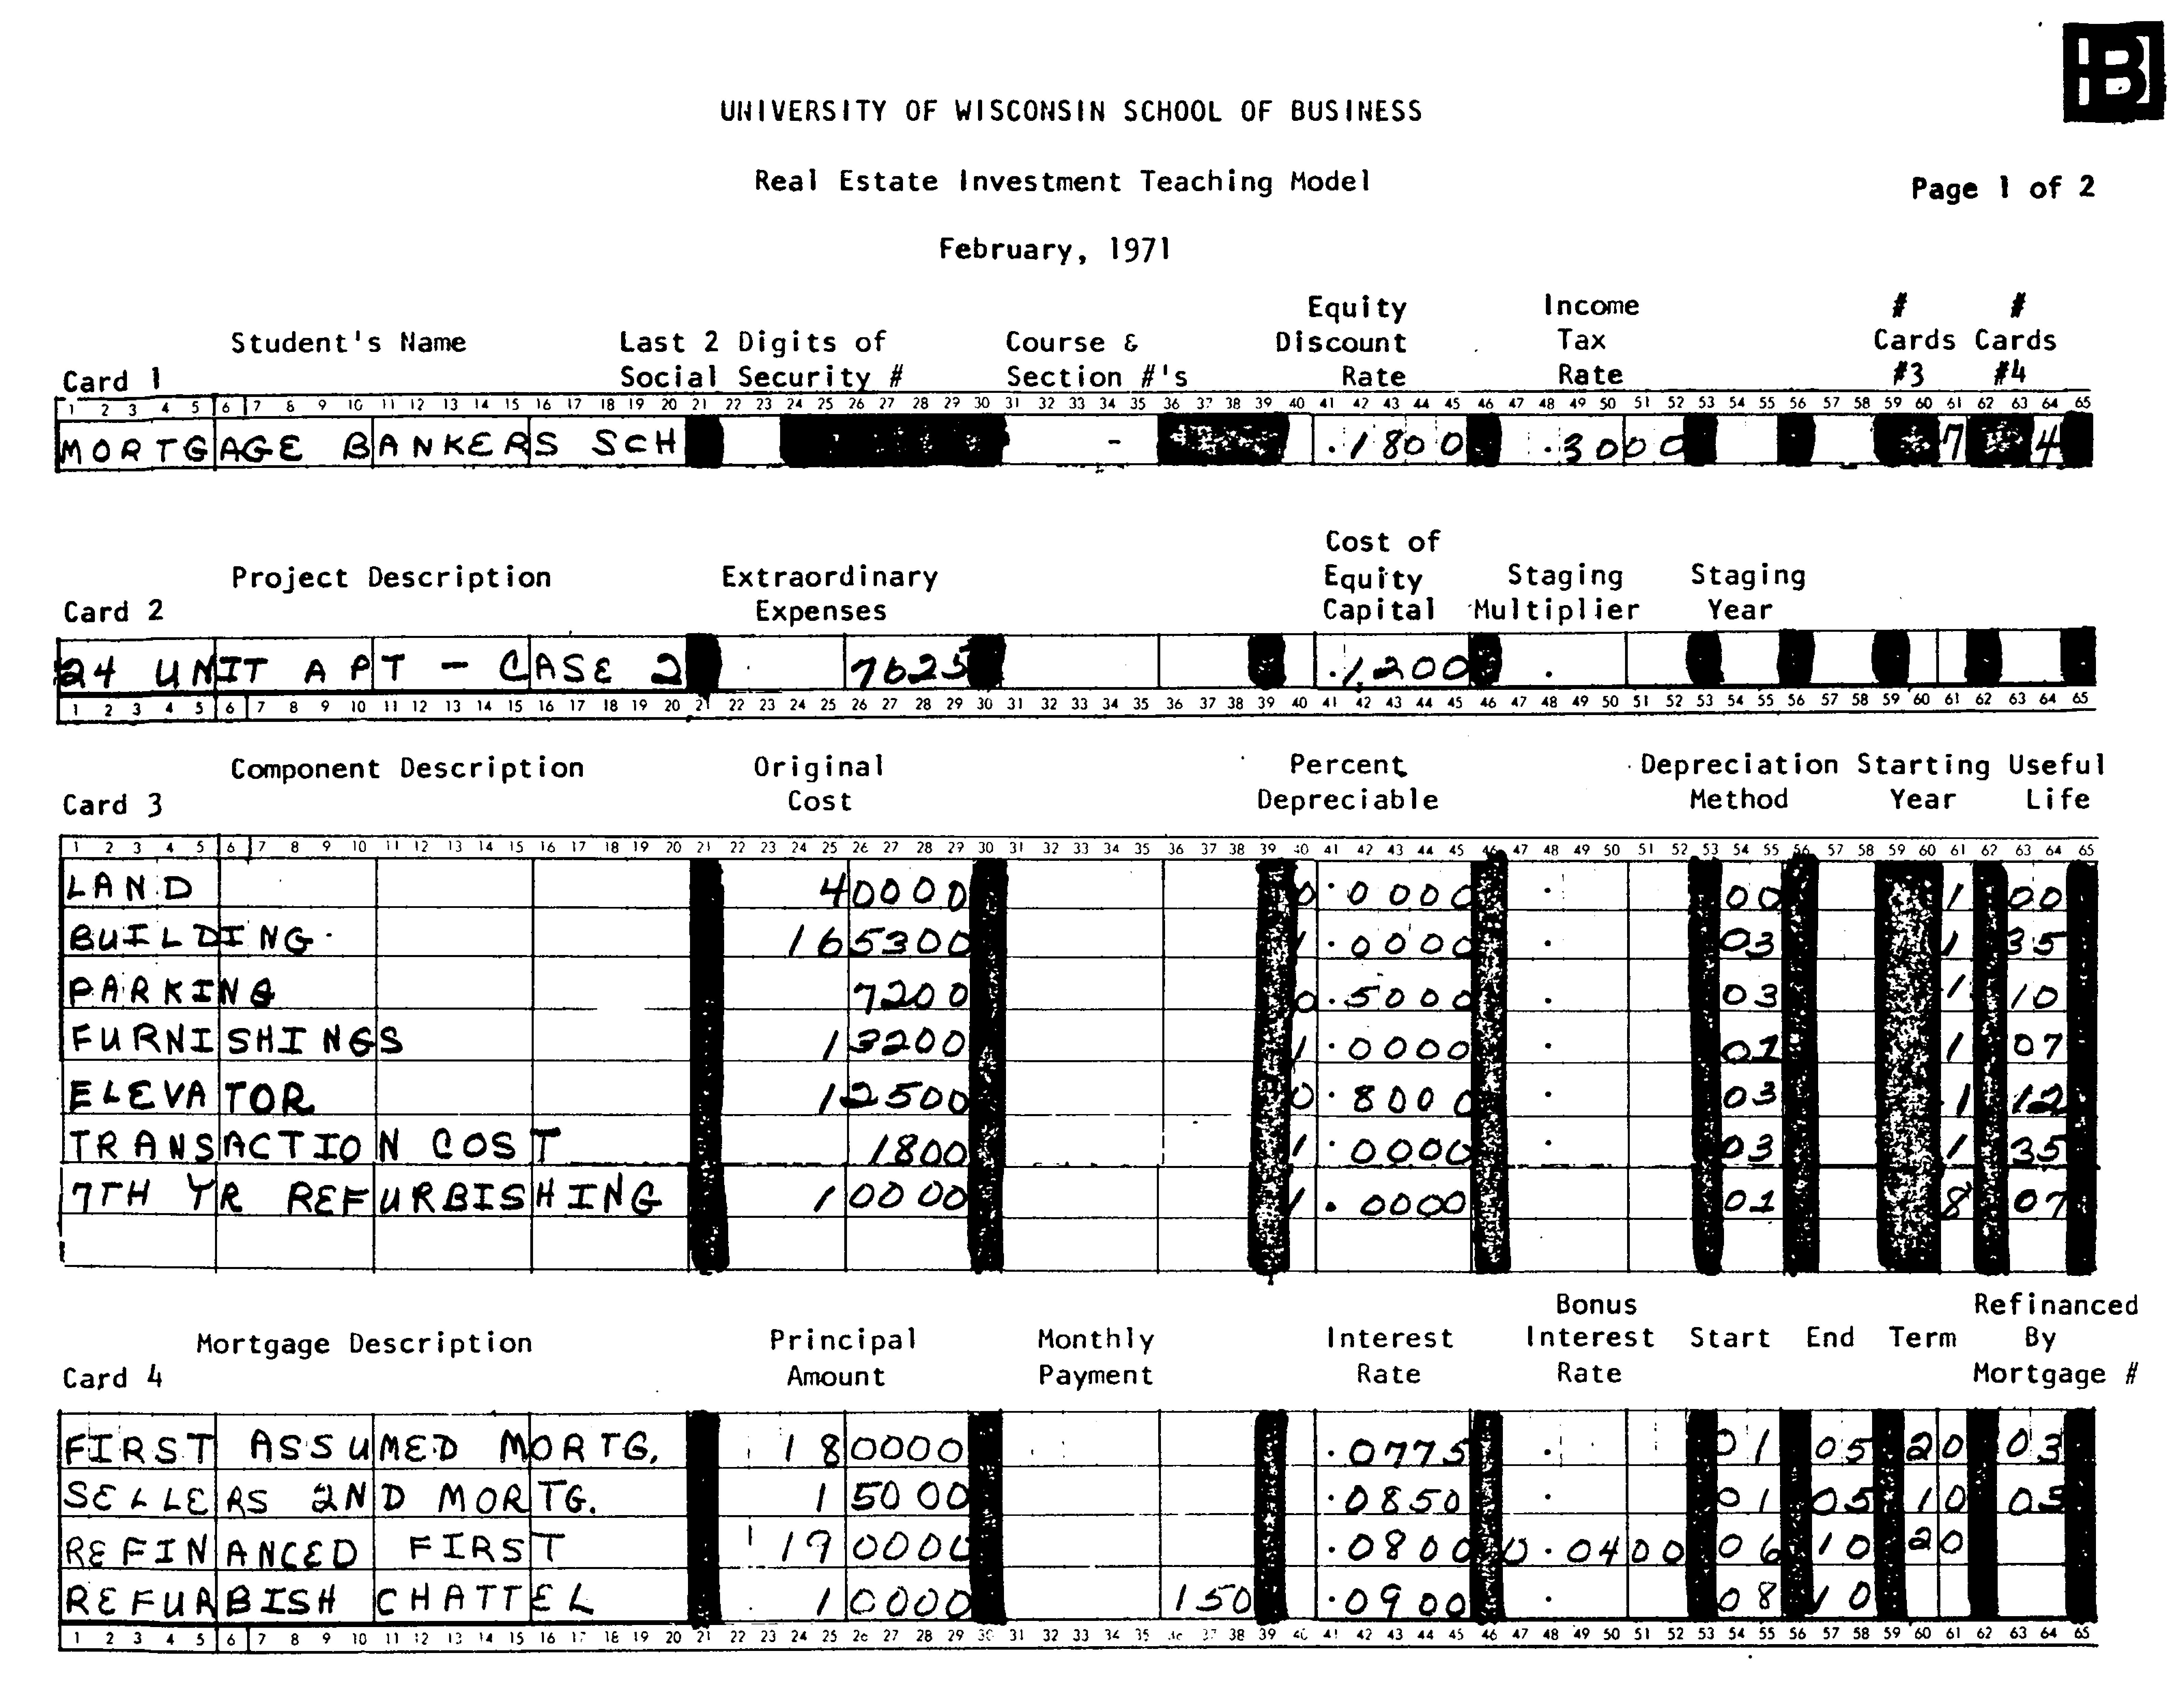 B
UNIVERSITY OF WISCONSIN SCHOOL OF BUSINESS
Real Estate Investment Teaching Model
Page 1 of 2
February, 1971
Equity Income # #
Student's Name Last 2 Digits of Course & Discount Tax Cards Cards
Card 1 Social Security # Section #'s Rate Rate #3 #4
1 2 3 4 5 6 7 8 9 10 11 12 13 14 15 16 17 18 19 20 21 22 23 24 25 26 27 28 29 30 31 32 33 34 35 36 37 38 39 40 41 42 43 44 45 46 47 48 49 50 51 52 53 54 55 56 57 58 59 60 61 62 63 64 65
MORTGAGE BANKERS SCH - .1800 .3000 7 4
Cost of
Project Description Extraordinary Equity Staging Staging
Card 2 Expenses Capital Multiplier Year
24 UNIT APT - CASE 2 7625 .1200 .
1 2 3 4 5 6 7 8 9 10 11 12 13 14 15 16 17 18 19 20 21 22 23 24 25 26 27 28 29 30 31 32 33 34 35 36 37 38 39 40 41 42 43 44 45 46 47 48 49 50 51 52 53 54 55 56 57 58 59 60 61 62 63 64 65
Component Description Original Percent Depreciation Starting Useful
Card 3 Cost Depreciable Method Year Life
1 2 3 4 5 6 7 8 9 10 11 12 13 14 15 16 17 18 19 20 21 22 23 24 25 26 27 28 29 30 31 32 33 34 35 36 37 38 39 40 41 42 43 44 45 46 47 48 49 50 51 52 53 54 55 56 57 58 59 60 61 62 63 64 65
LAND 40000 0.0000 . 00 1 00
BUILDING 165300 1.0000 . 03 1 35
PARKING 7200 0.5000 . 03 1 10
FURNISHINGS 13200 1.0000 . 01 1 07
ELEVATOR 12500 0.8000 . 03 1 12
TRANSACTION COST 1800 1.0000 . 03 1 35
7TH YR REFURBISHING 10000 1.0000 01 8 07
Bonus Refinanced
Mortgage Description Principal Monthly Interest Interest Start End Term By
Card 4 Amount Payment Rate Rate Mortgage #
FIRST ASSUMED MORTG. 180000 .0775 . 01 05 20 03
SELLERS 2ND MORTG. 15000 .0850 . 01 05 10 03
REFINANCED FIRST 190000 .0800 0.0400 06 10 20
REFURBISH CHATTEL 10000 150 .0900 . 08 10
1 2 3 4 5 6 7 8 9 10 11 12 13 14 15 16 17 18 19 20 21 22 23 24 25 26 27 28 29 30 31 32 33 34 35 36 37 38 39 40 41 42 43 44 45 46 47 48 49 50 51 52 53 54 55 56 57 58 59 60 61 62 63 64 65